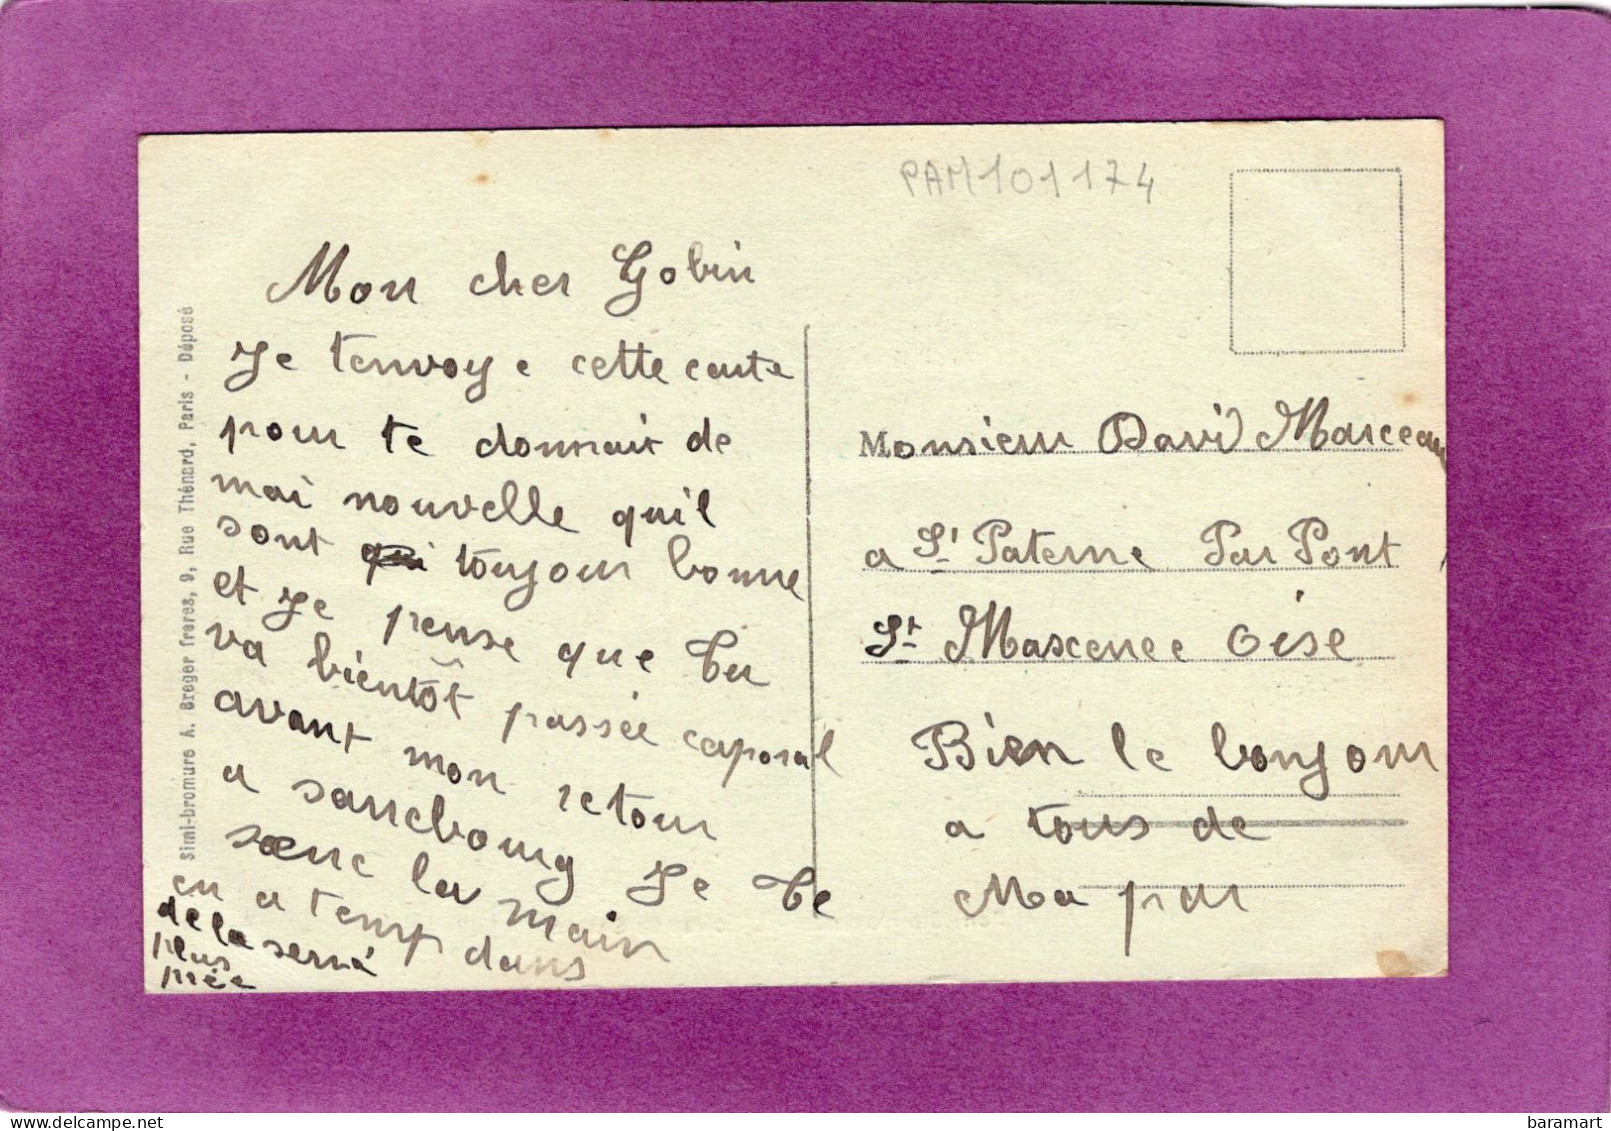 PAM101174
Mon cher Gobin
Je tenvoye cette carte
pour te donnair de
mai nouvelle quil
sont toujour bonne
et je pense que tu
va bientôt passée caporal
avant mon retour
a sarrebourg Je te
serre la main
en a temp dans
de la serré
plus
prée
Simi-bromure A. Breger frères, 9, Rue Thénard, Paris - Déposé
Monsieur David Marceau
a St Paterne Par Pont
St Maxcenee Oise
Bien le bonjour
a tous de
Ma par
baramart